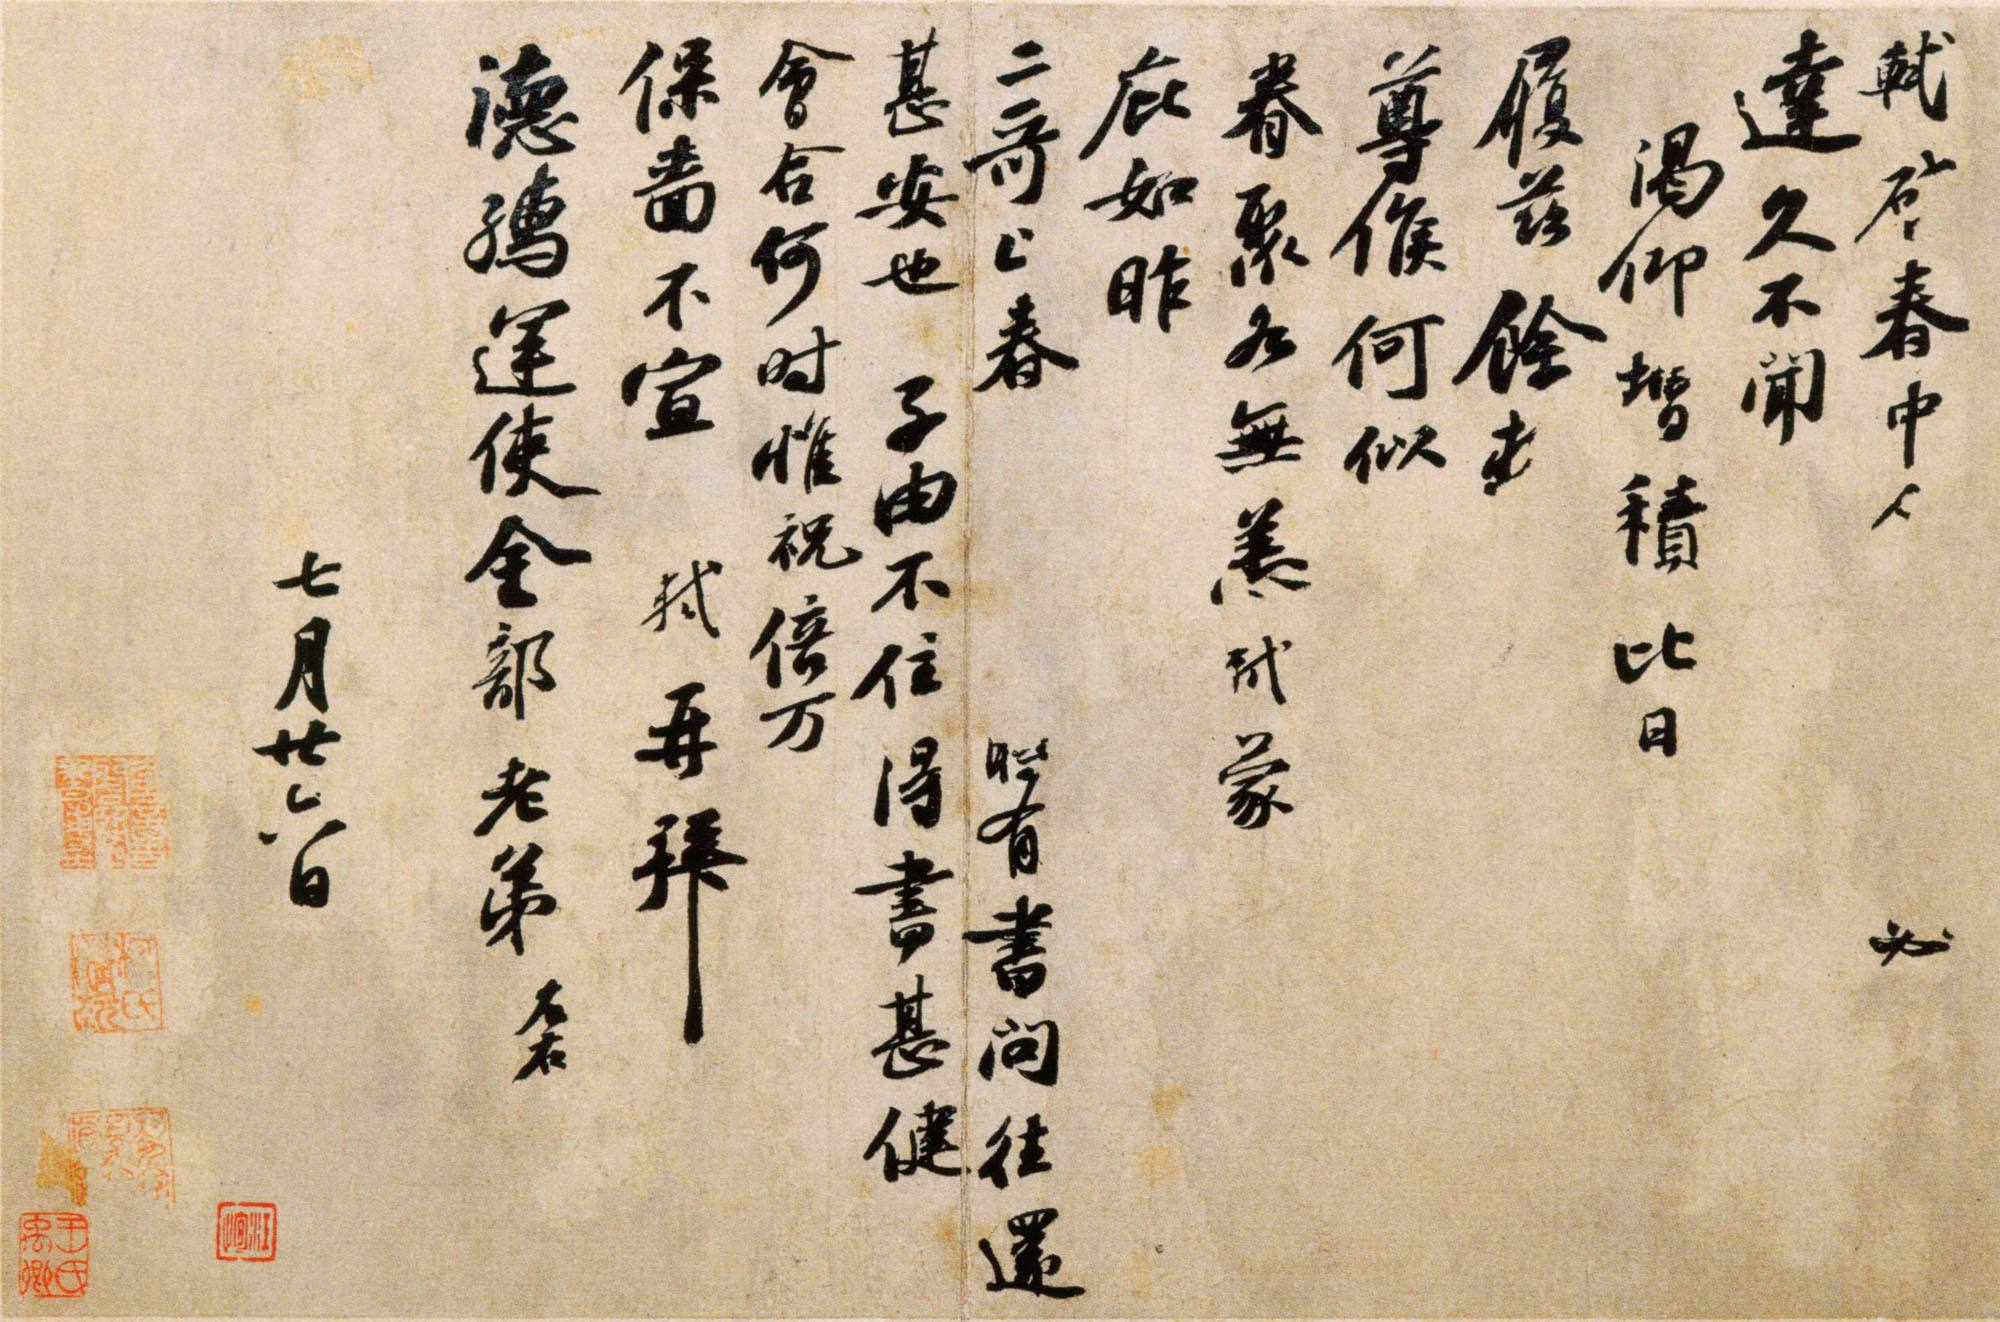 軾啓春中人 必
達久不聞
渴仰增積比日
履茲餘
尊候何似
眷聚各無恙軾蒙
庇如昨
二哥上春 有書問往還
甚安也子由不住得書甚健
會合何時惟祝倍万
保嗇不宣軾再拜
德孺運使金部老弟左右
七月廿六日